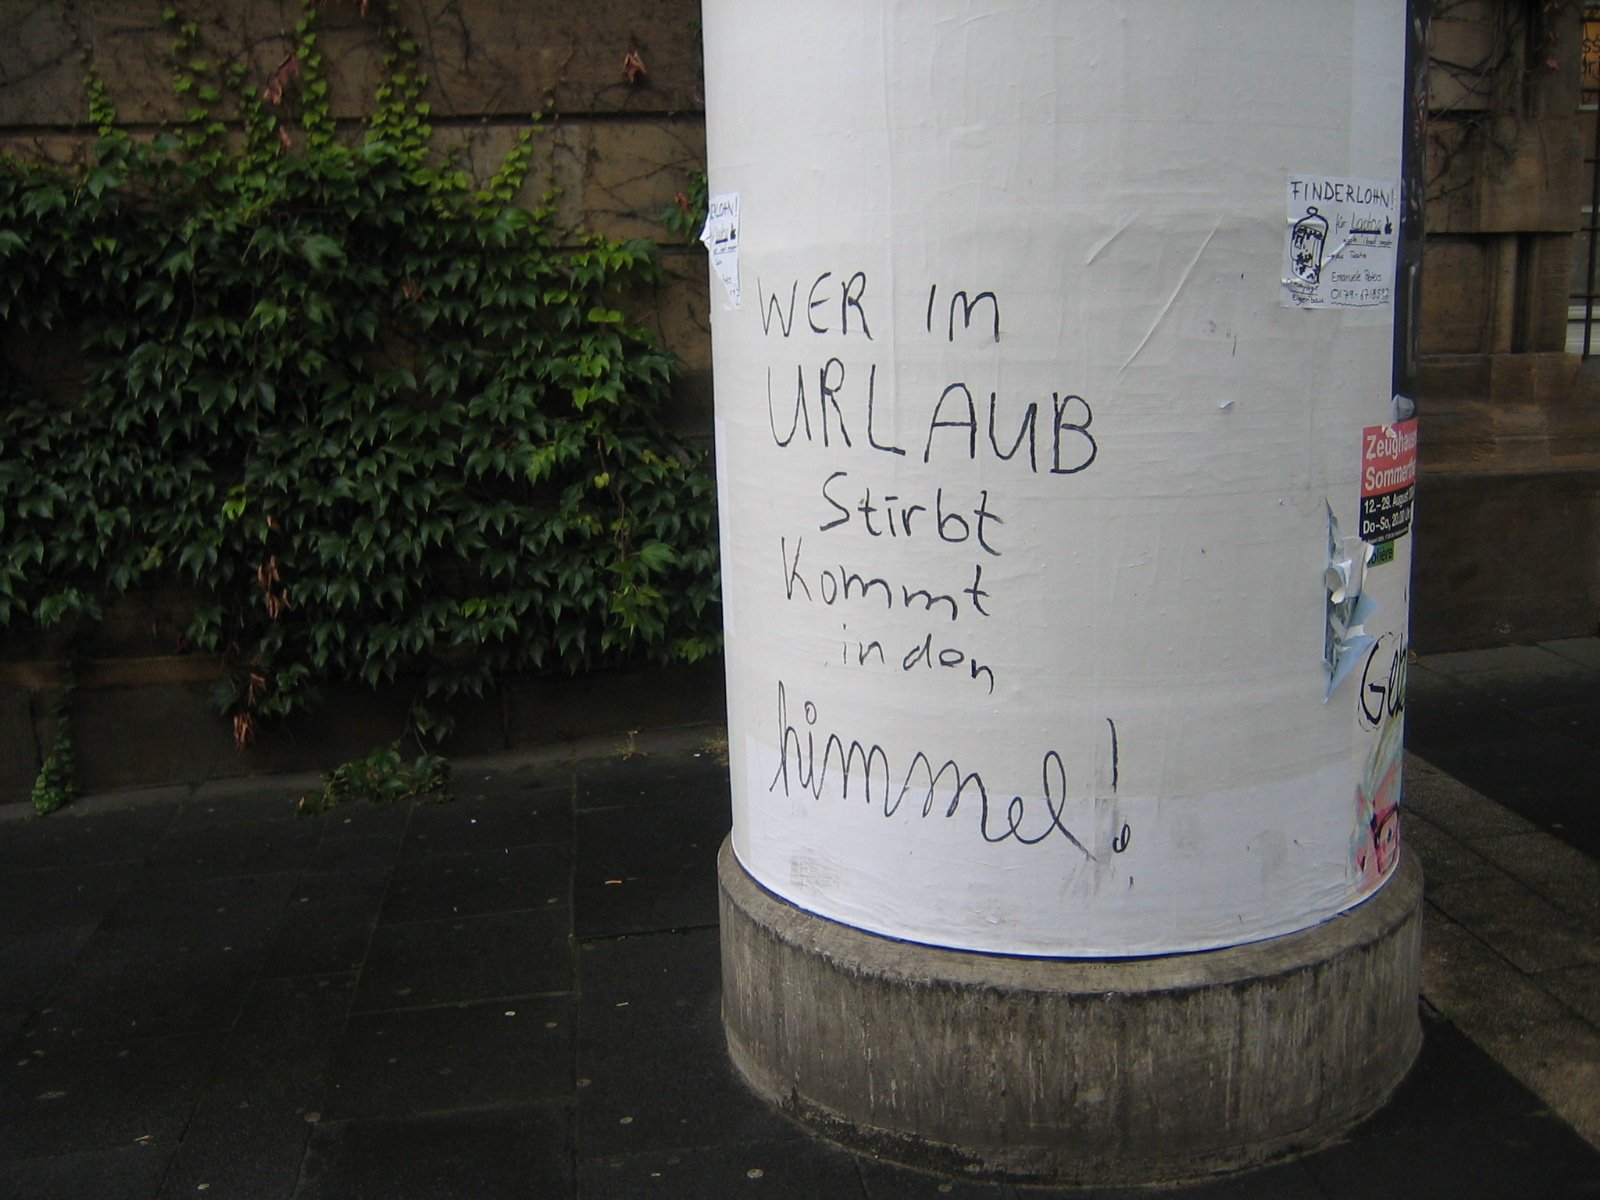 WER IM
URLAUB
Stirbt
Kommt
in den
himmel!
ERLOHN!
FINDERLOHN!
für Laptop
Emanuele Peters
Eigenbau
Zeughaus
Sommer
12.-29. August
Do-So, 20.00 Uhr
olière
Geb